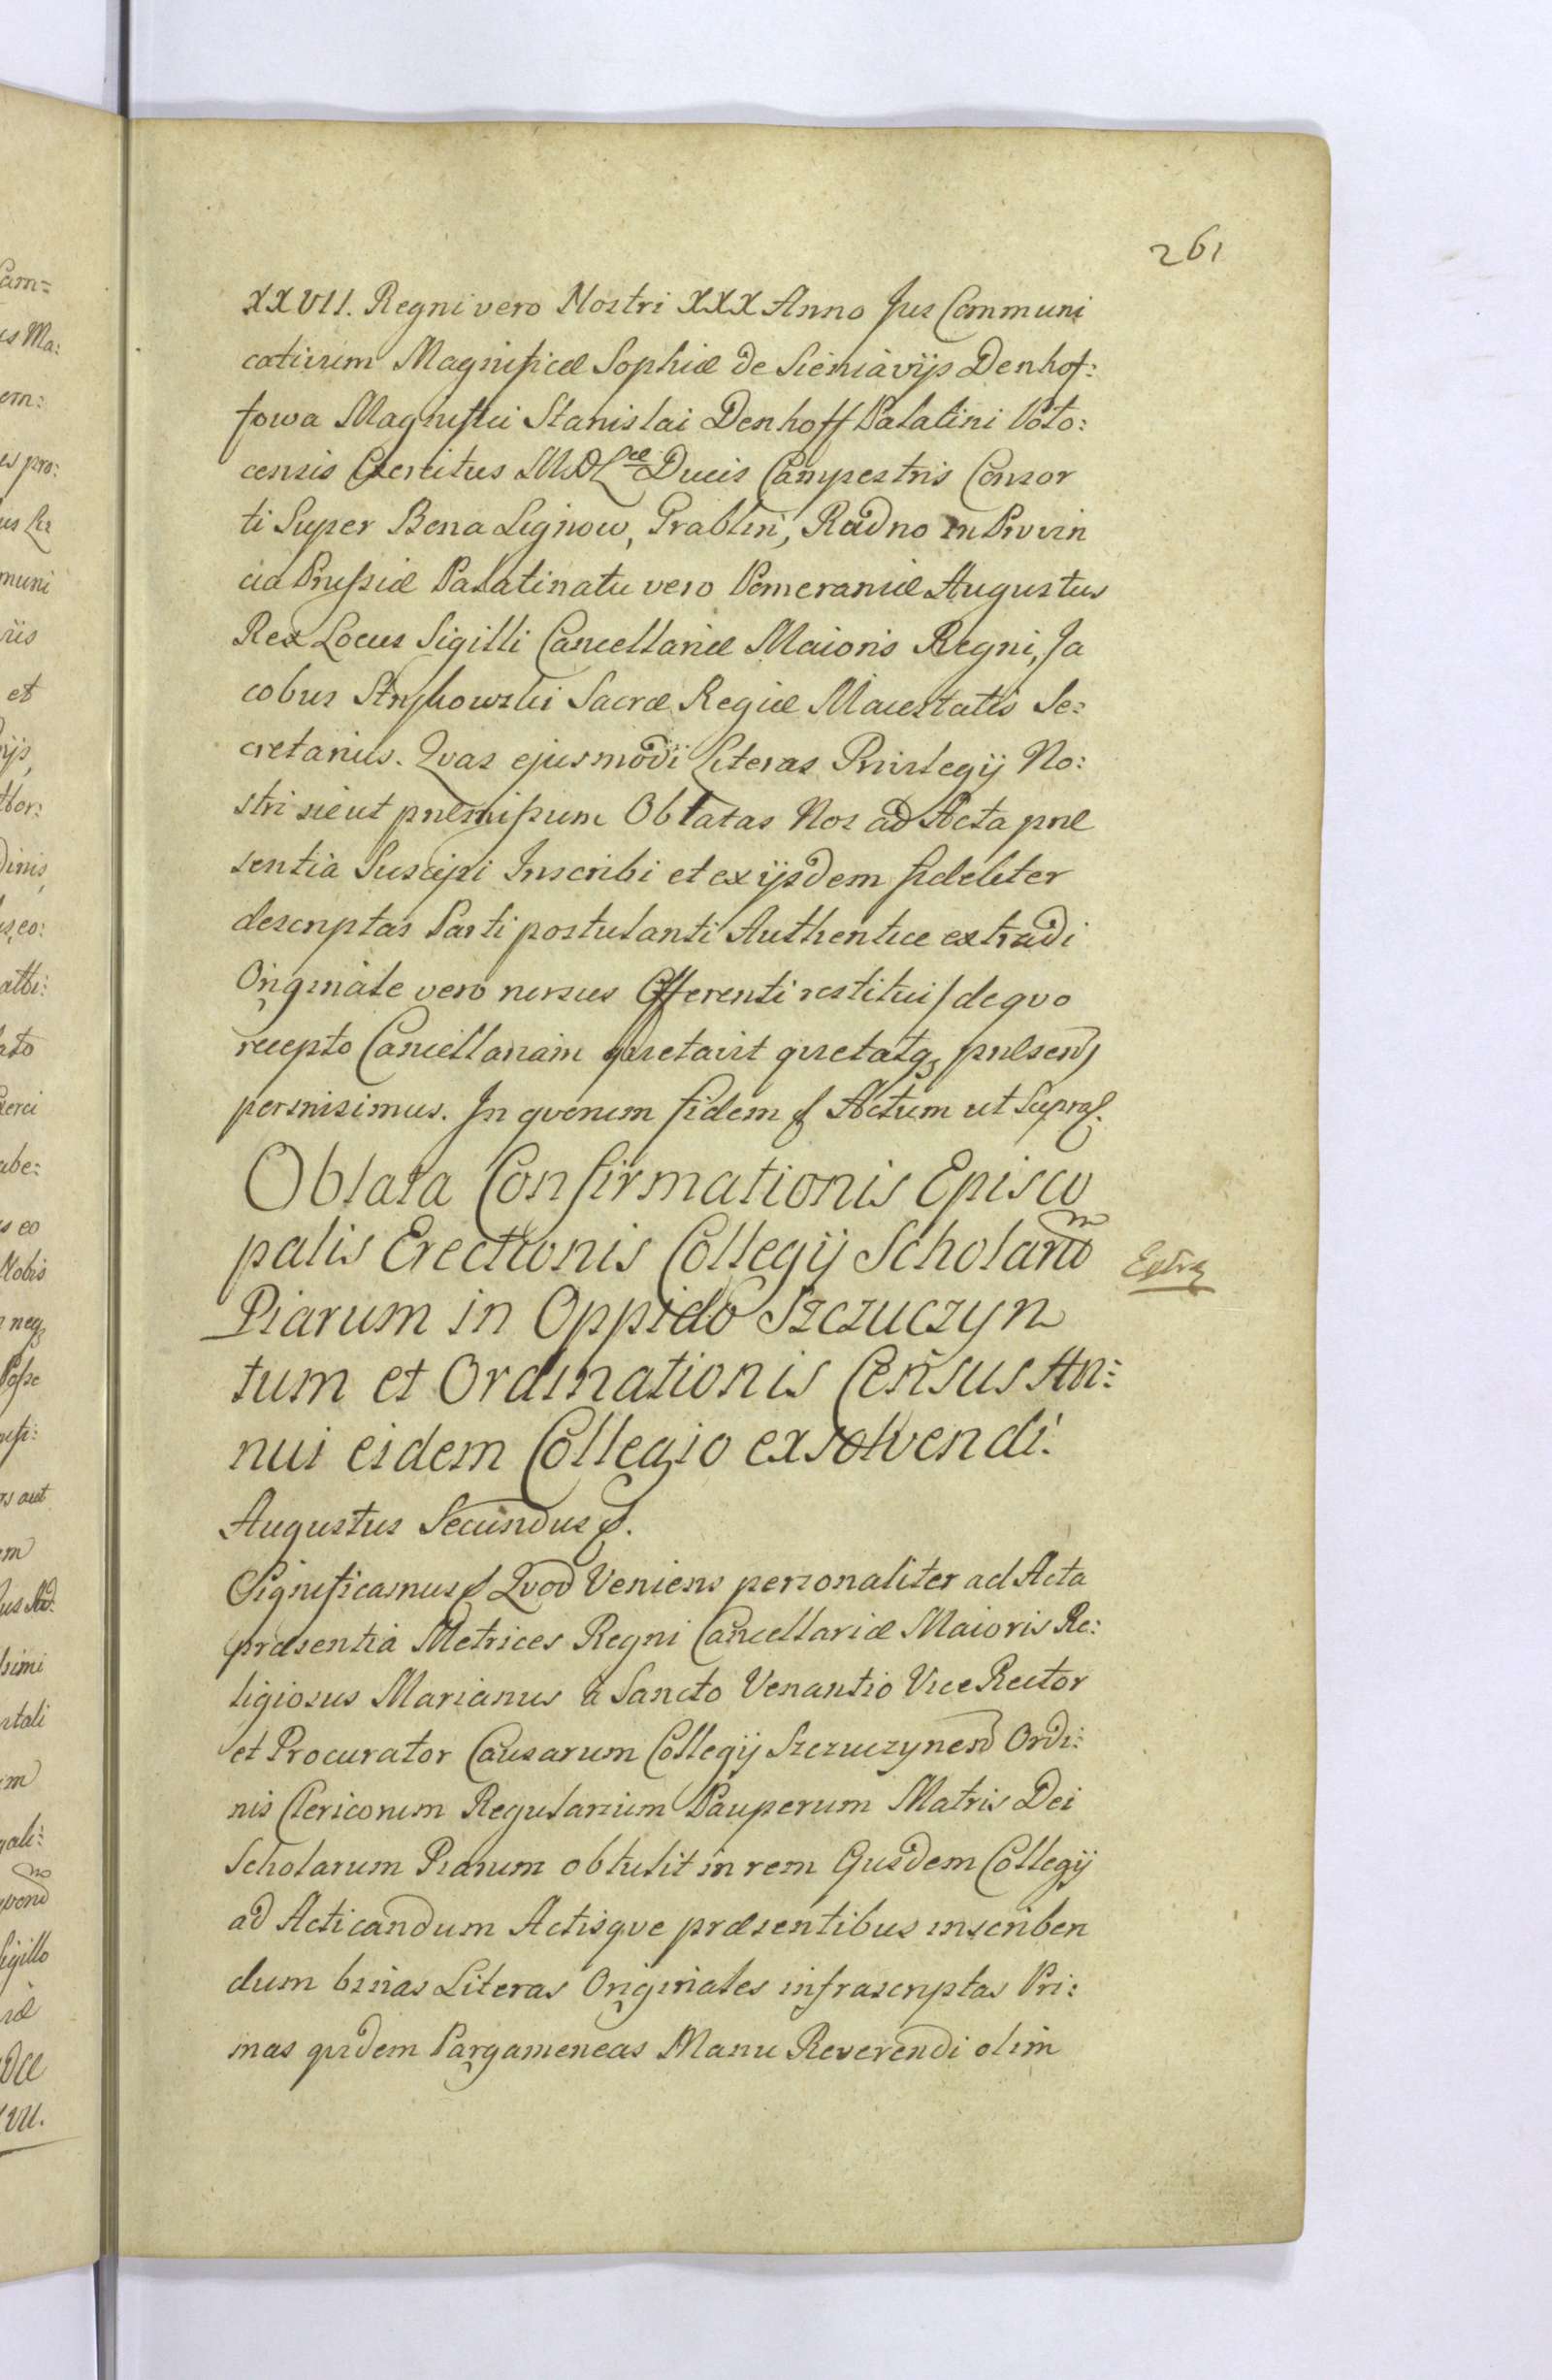 261
XXVII. Regni vero Nostri XXX Anno Jus Communi
cativum Magnificæ Sophiæ de Sieniavijs Denhof:
fowa Magnifici Stanislai Denhoff Palatini Polo:
censis Exercitus MDL^æ Ducis Campestris Consor
ti Super Bona Lignow, Grablin, Radno in Provin
cia Prussiæ Palatinatu vero Pomeraniæ Augustus
Rex Locus Sigilli Cancellariæ Maioris Regni, Ja
cobus Strykowski Sacræ Regiæ Maiestatis Se:
cretarius. Qvas ejusmodi Literas Privilegij No:
stri sicut præmissum Oblatas Nos ad Acta præ
sentia Suscipi Inscribi et ex ijsdem fideliter
descriptas Parti postulanti Authentice extradi
Originale vero rursus Offerenti restitui / de qvo
recepto Cancellariam qvietavit qvietatq præsen
permisimus. In qvorum fidem Actum ut Supra
Oblata Confirmationis Episco
palis Erectionis Collegij Scholarum
Piarum in Oppido Szczuczyn
tum et Ordinationis Census An:
nui eidem Collegio exsolvendi.
Extra
Augustus Secundus
Significamus Qvod Veniens personaliter ad Acta
præsentia Metrices Regni Cancellariæ Maioris Re:
ligiosus Marianus a Sancto Venantio Vice Rector
et Procurator Causarum Collegij Szczuczynen Ordi:
nis Clericorum Regularium Pauperum Matris Dei
Scholarum Piarum obtulit in rem Ejusdem Collegij
ad Acticandum Actisqve præsentibus inscriben
dum binas Literas Originales infrascriptas Pri:
mas qvidem Pargameneas Manu Reverendi olim